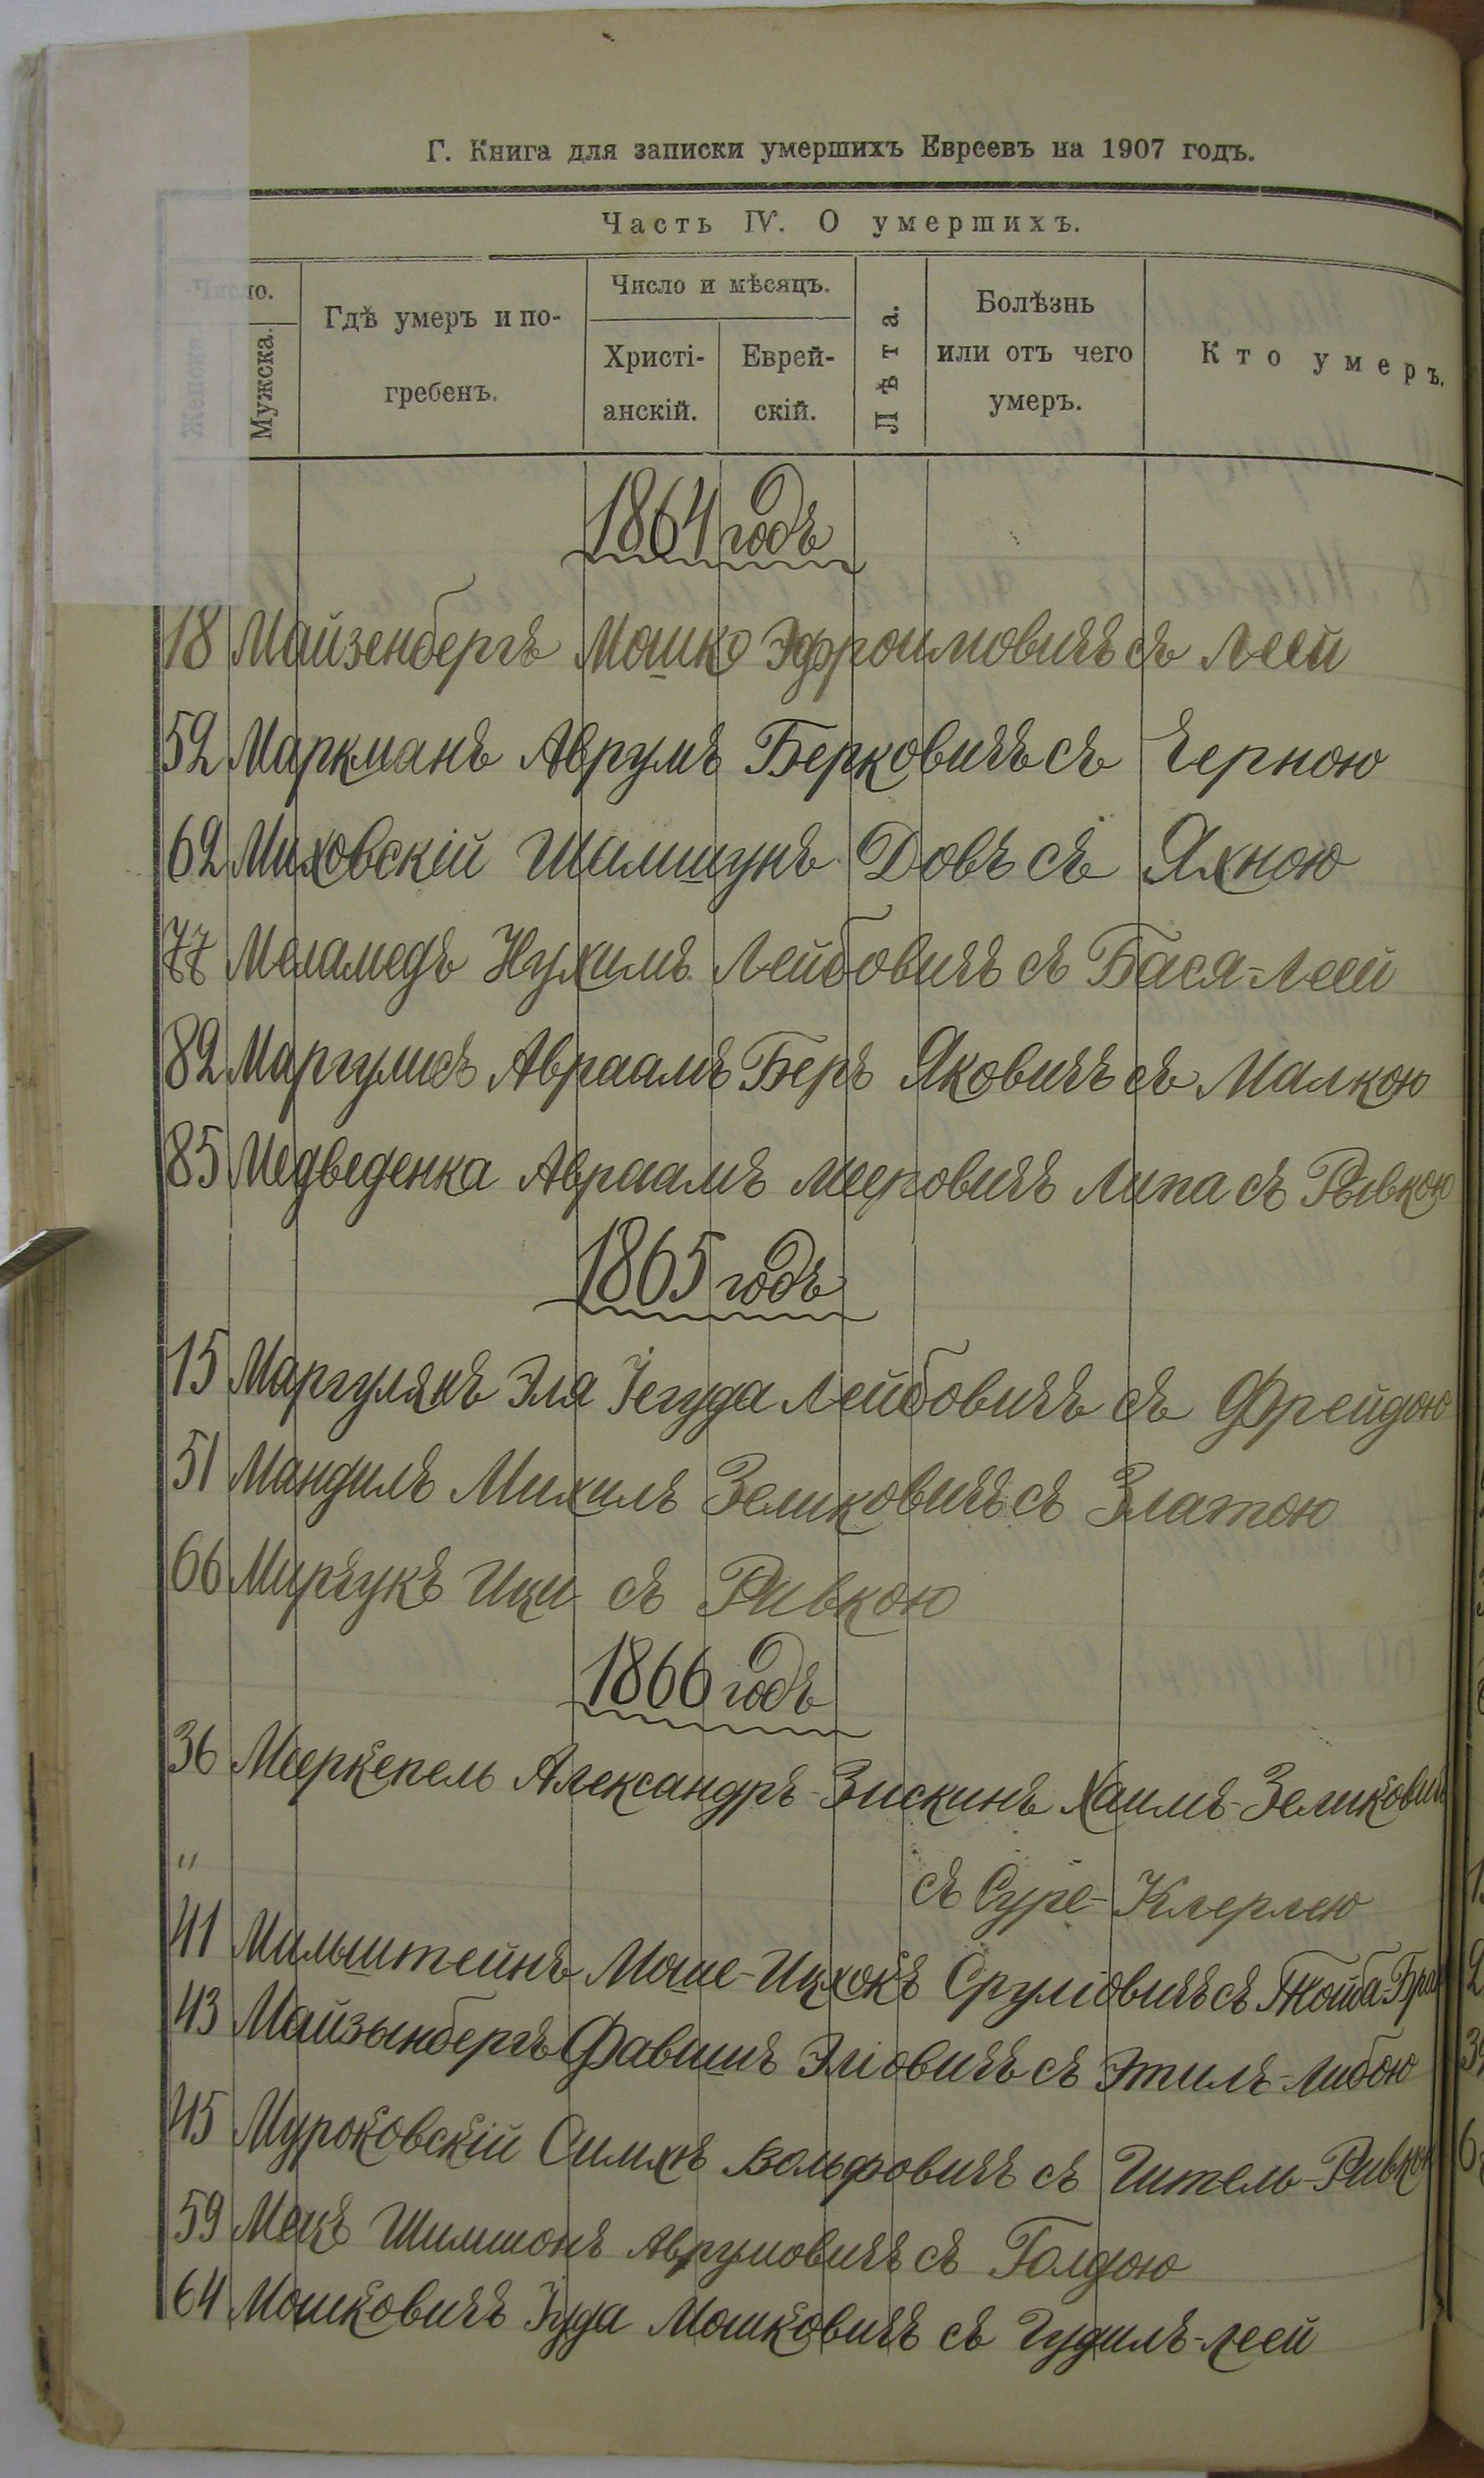 Г. Книга для записки умершихъ Евреевъ на 1907 годъ.
Часть IV. О умершихъ.
Число.
Женска
Мужска.
Гдѣ умеръ и по-
гребенъ.
Число и мѣсяцъ.
Христі-
анскій.
Еврей-
скій.
Лѣта.
Болѣзнь
или отъ чего
умеръ.
Кто умеръ.
1864 годъ
18 Майзенбергъ Мошко Эфроимовичъ съ Леей
52 Маркманъ Аврумъ Берковичъ съ Черною
62 Миховскій Шамшунъ Довъ съ Яхною
77 Меламедъ Нухимъ Лейбовичъ съ Бася-Леей
82 Маргулисъ Авраамъ Беръ Яковичъ съ Малкою
85 Медведенка Авраамъ Мееровичъ Липа съ Рывкою
1865 годъ
15 Маргулянъ Эля Іегуда Лейбовичъ съ Фрейдою
51 Мандилъ Михилъ Зеликовичъ съ Златою
66 Мирчукъ Ици съ Ривкою
1866 годъ
36 Мееркепель Александръ-Зискинъ Хаимъ-Зеликовичъ
" съ Суре-Клерлею
41 Мильштейнъ Моше-Ицхокъ Сруліовичъ съ Тойба-Бра
43 Майзынбергъ Фавишъ Эліовичъ съ Этилъ-Либою
45 Муроковскій Симхъ Вольфовичъ съ Гитель-Ривкою
59 Мекъ Шимшонъ Аврумовичъ съ Голдою
64 Мошковичъ Іуда Мошковичъ съ Гудилъ-Леей